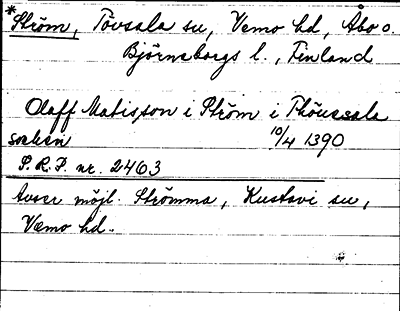 *Ström, Tövsala sn, Vemo hd, Åbo o.
Björneborgs l., Finland
Olaff Matisson i Ström i Thöussala
soken 10/4 1390
S.R.P. nr. 2463
Avser möjl. Strömma, Kustavi sn,
Vemo hd.